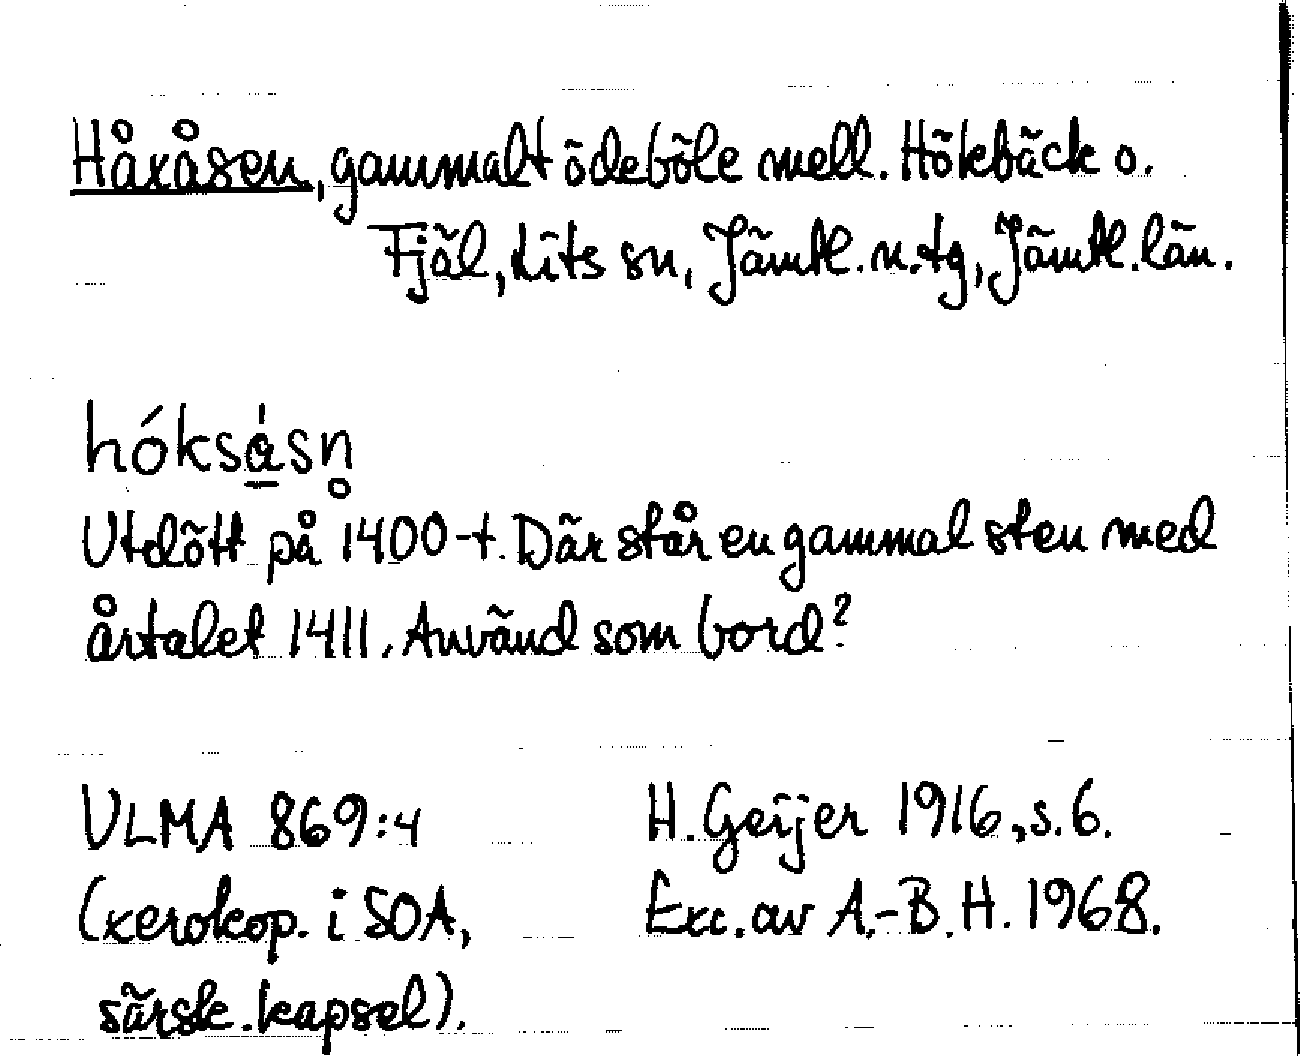 Håxåsen, gammalt ödeböle mell. Hökbäck o.
Fjäl, Lits sn, Jämtl. n. tg, Jämtl. län.
hóksásn̥
Utdött på 1400-t. Där står en gammal sten med
årtalet 1411. Använd som bord?
ULMA 869:4
H. Geijer 1916, s. 6.
(xerokop. i SOA,
Exc. av A.-B. H. 1968.
särsk. kapsel).